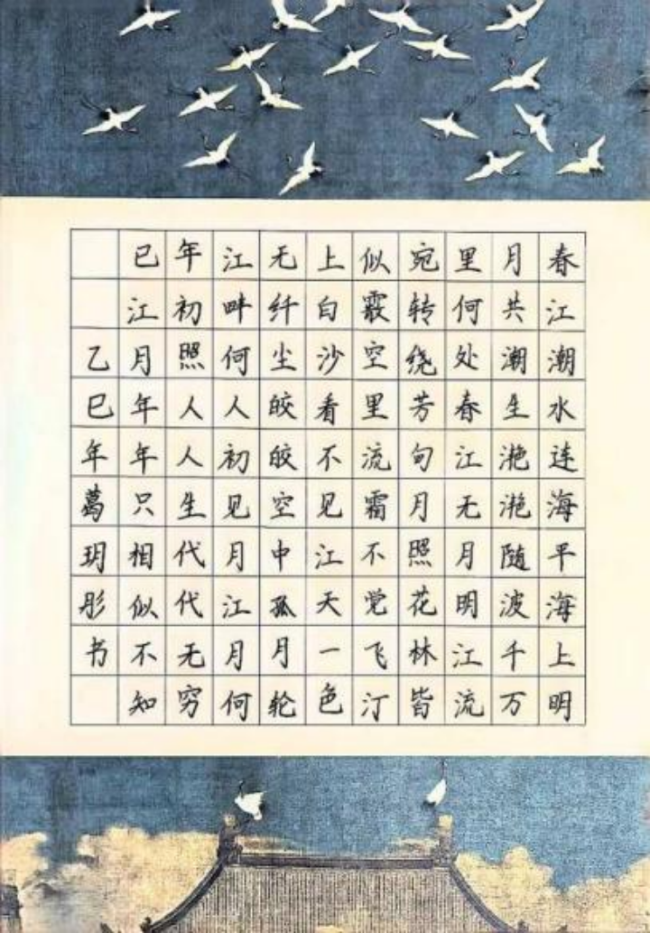 春江潮水连海平海上明
月共潮生滟滟随波千万
里何处春江无月明江流
宛转绕芳甸月照花林皆
似霰空里流霜不觉飞汀
上白沙看不见江天一色
无纤尘皎皎空中孤月轮
江畔何人初见月江月何
年初照人人生代代无穷
已江月年年只相似不知
乙巳年葛玥彤书